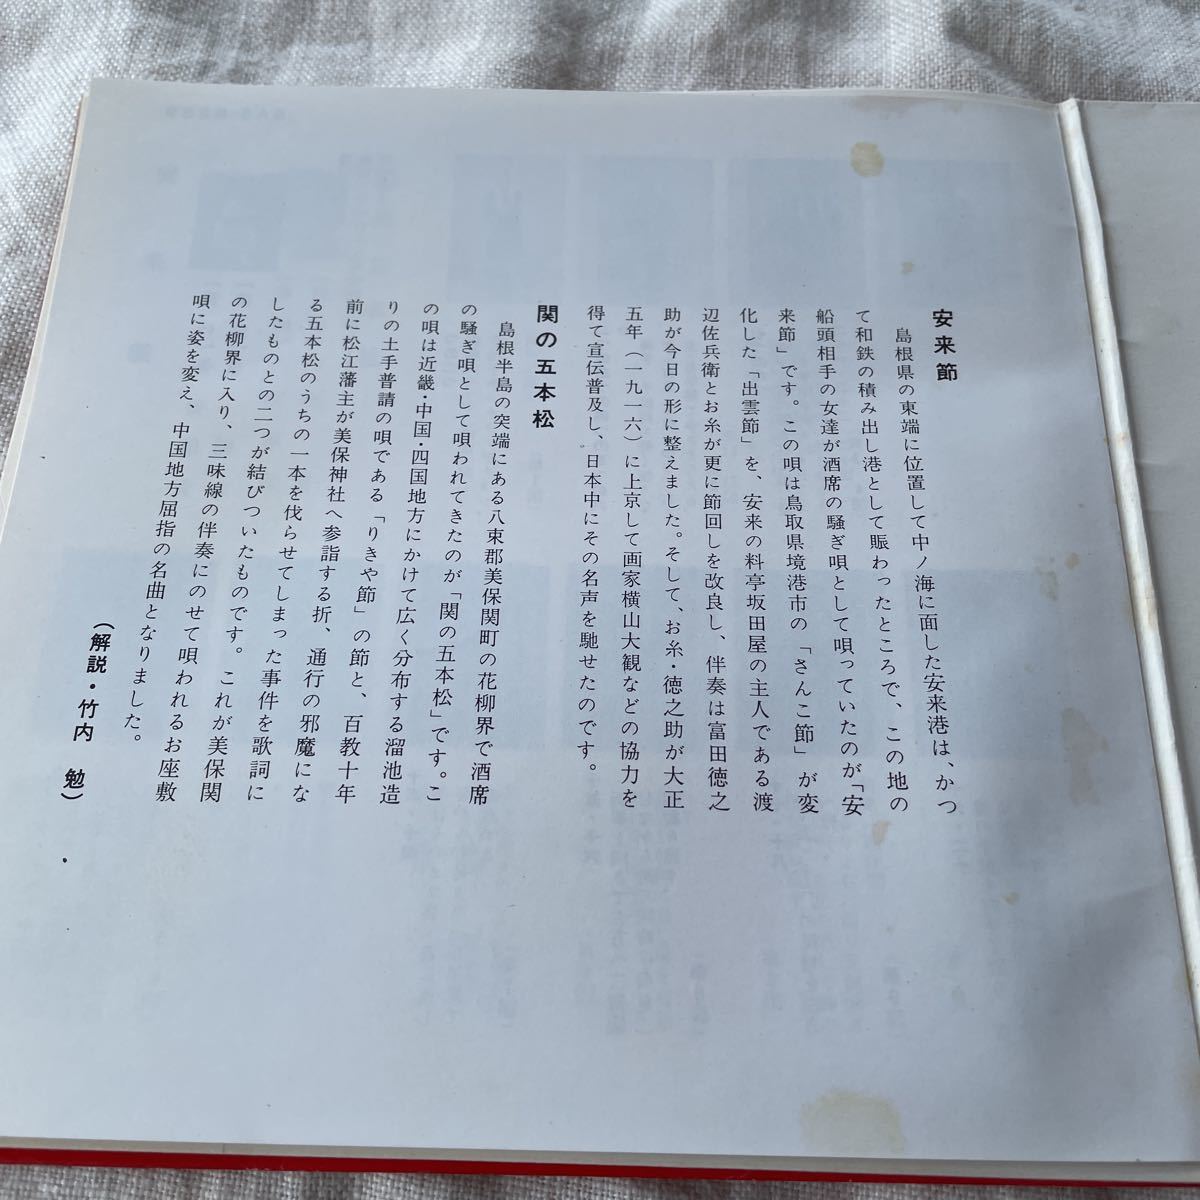 安来節
島根県の東端に位置して中ノ海に面した安来港は、かつ
て和鉄の積み出し港として賑わったところで、この地の
船頭相手の女達が酒席の騒ぎ唄として唄っていたのが「安
来節」です。この唄は鳥取県境港市の「さんこ節」が変
化した「出雲節」を、安来の料亭坂田屋の主人である渡
辺佐兵衛とお糸が更に節回しを改良し、伴奏は富田徳之
助が今日の形に整えました。そして、お糸・徳之助が大正
五年(一九一六)に上京して画家横山大観などの協力を
得て宣伝普及し、日本中にその名声を馳せたのです。
関の五本松
島根半島の突端にある八束郡美保関町の花柳界で酒席
の騒ぎ唄として唄われてきたのが「関の五本松」です。こ
の唄は近畿・中国・四国地方にかけて広く分布する溜池造
りの土手普請の唄である「りきや節」の節と、百教十年
前に松江藩主が美保神社へ参詣する折、通行の邪魔にな
る五本松のうちの一本を伐らせてしまった事件を歌詞に
したものとの二つが結びついたものです。これが美保関
の花柳界に入り、三味線の伴奏にのせて唄われるお座敷
唄に姿を変え、中国地方屈指の名曲となりました。
(解説・竹内 勉)